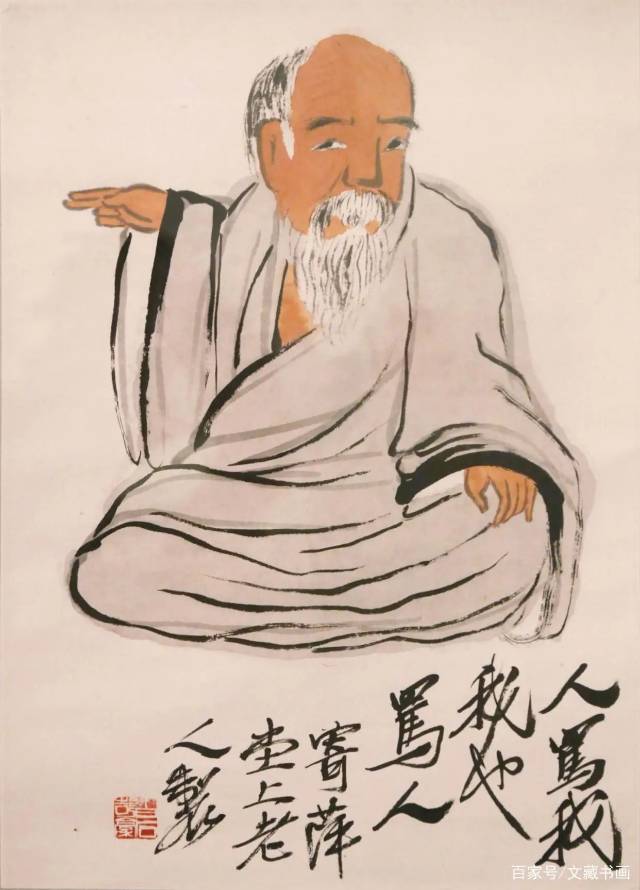 人罵我
我也
罵人
寄萍
堂上老
人製
百家号/文藏书画